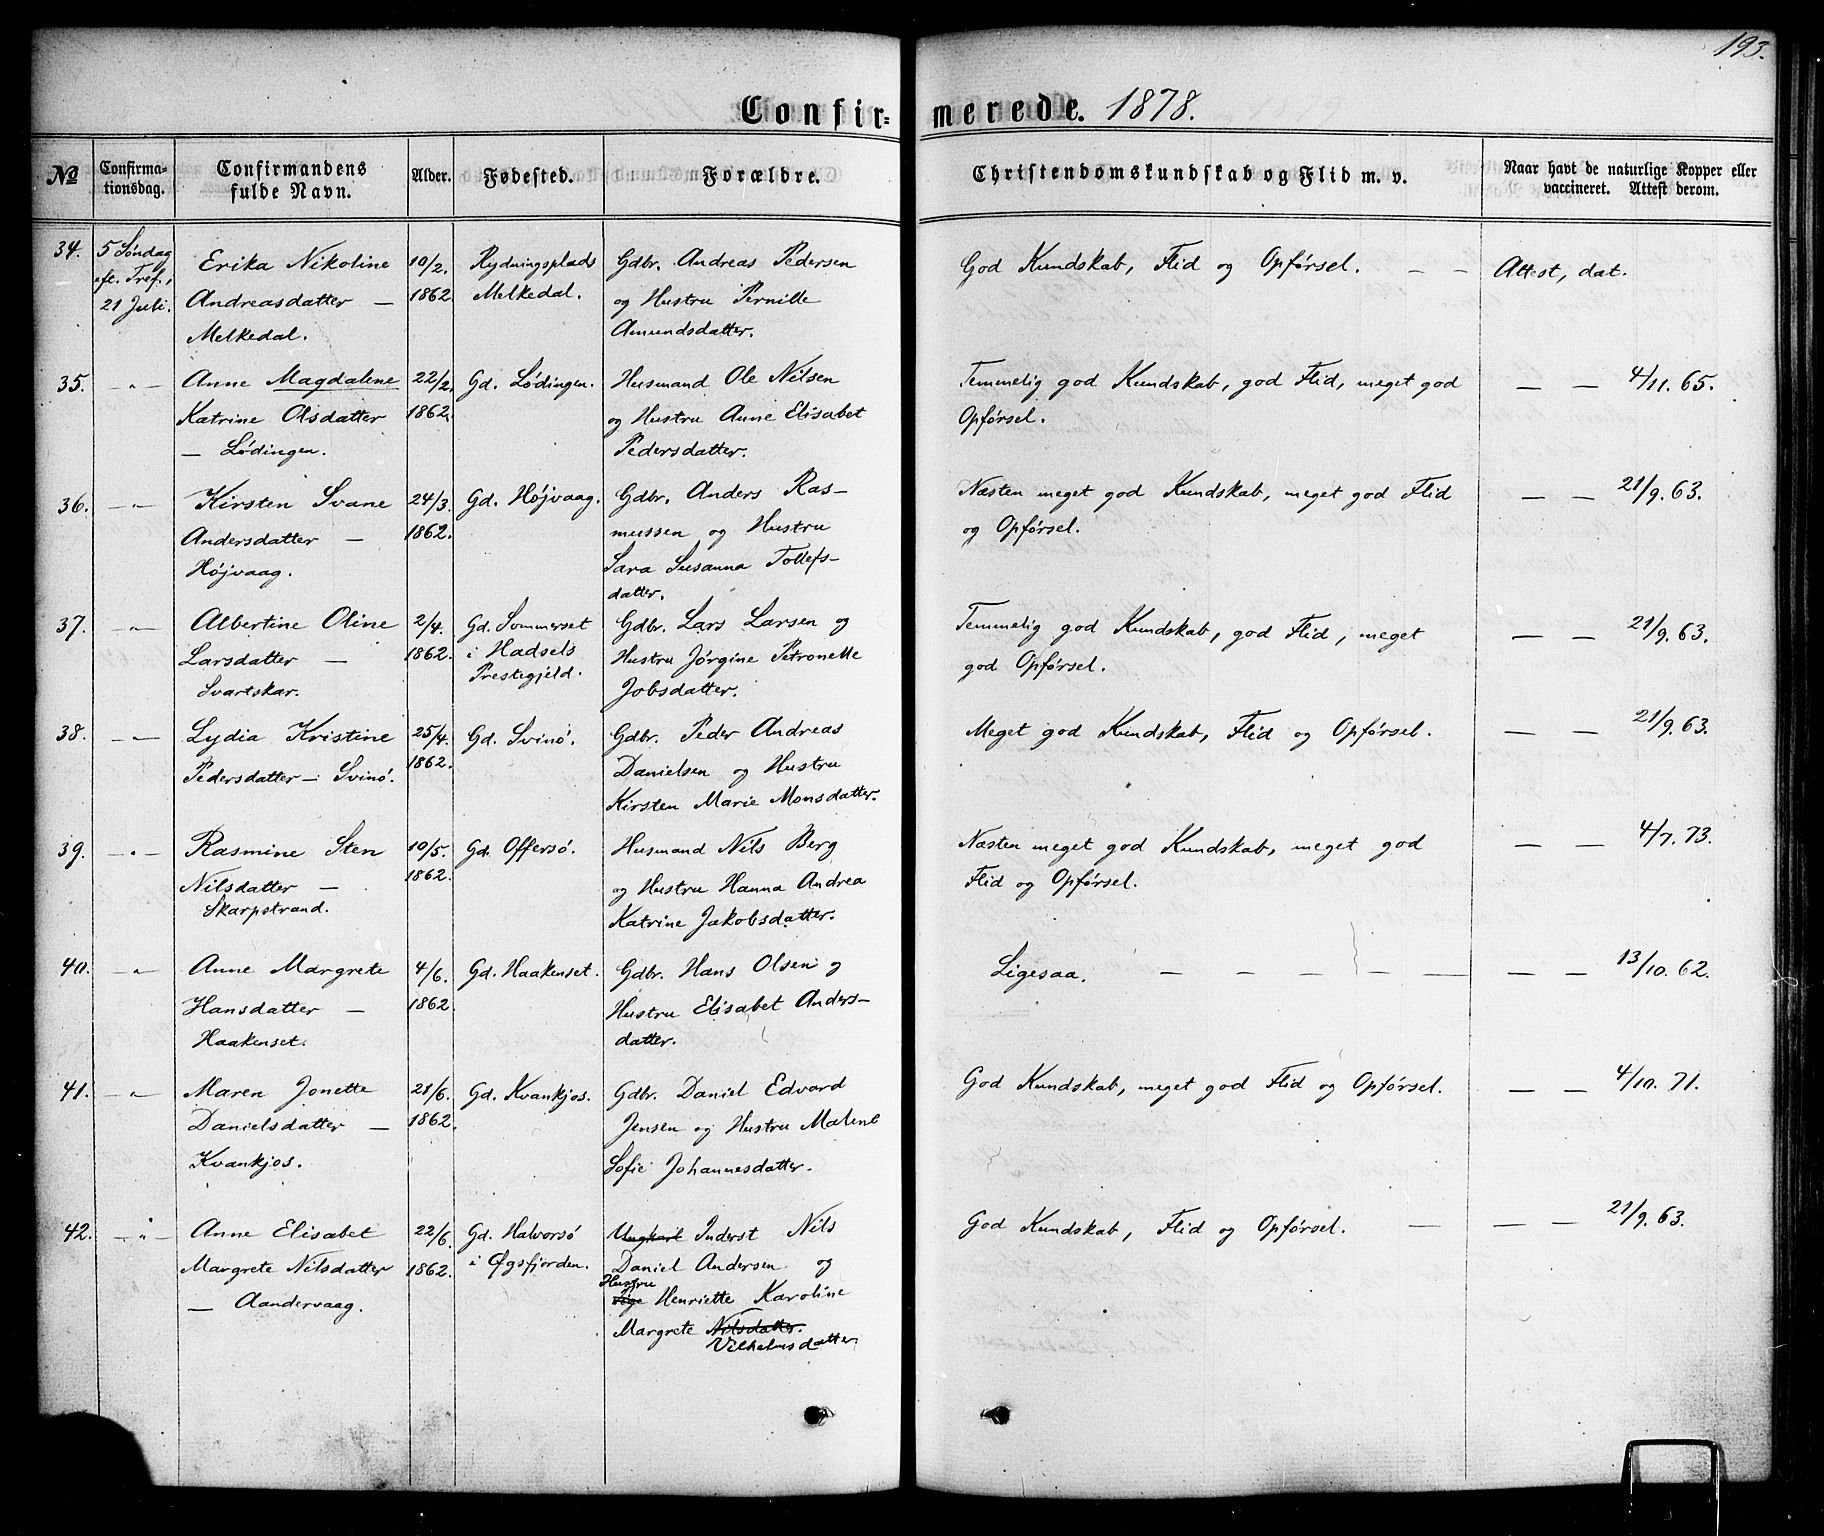 193.
Confirmerede. 1878.
No
Confirmationsdag.
Confirmandens fulde Navn.
Alder.
Fødested.
Forældre.
Christendomskundskab og Flid m. v.
Naar havt de naturlige Kopper eller vaccineret. Attest derom.
34. 5 Søndag Erika Nikoline 10/2. Rydningsplads Gdbr. Andreas Pedersen God Kundskab, Flid og Opførsel. — — Attest, dat.
eft. Tref., Andreasdatter — 1862. Melkedal. og Hustru Pernille
21 Juli. Melkedal. Amundsdatter.
35. —„— Anne Magdalene 22/2. Gd. Lødingen. Husmand Ole Nilsen Temmelig god Kundskab, god Flid, meget god — — 4/11. 65.
Katrine Olsdatter 1862. og Hustru Anne Elisabet Opførsel.
— Lødingen. Pedersdatter.
36. —„— Kirsten Svane 24/3. Gd. Højvaag. Gdbr. Anders Ras- Næsten meget god Kundskab, meget god Flid — — 21/9. 63.
Andersdatter — 1862. mussen og Hustru og Opførsel.
Højvaag. Sara Susanna Tollefs-
datter.
37. —„— Albertine Oline 2/4. Gd. Sommerset Gdbr. Lars Larsen og Temmelig god Kundskab, god Flid, meget — — 21/9. 63.
Larsdatter — 1862. i Hadsels Hustru Jørgine Petronelle god Opførsel.
Svartskar. Prestegjeld. Jobsdatter.
38. —„— Lydia Kristine 25/4. Gd. Svinø. Gdbr. Peder Andreas Meget god Kundskab, Flid og Opførsel. — — 21/9. 63.
Pedersdatter — Svinø. 1862. Danielsen og Hustru
Kirsten Marie Monsdatter.
39. —„— Rasmine Sten 10/5. Gd. Offersø. Husmand Nils Berg Næsten meget god Kundskab, meget god — — 4/7. 73.
Nilsdatter — 1862. og Hustru Hanna Andrea Flid og Opførsel.
Skarpstrand. Katrine Jakobsdatter.
40. —„— Anne Margrete 4/6. Gd. Haakenset. Gdbr. Hans Olsen og Ligesaa. — — — — — — — 13/10. 62.
Hansdatter — 1862. Hustru Elisabet Anders-
Haakenset. datter.
41. —„— Maren Jonette 21/6. Gd. Kvankjos. Gdbr. Daniel Edvard God Kundskab, meget god Flid og Opførsel. — — 4/10. 71.
Danielsdatter — 1862. Jensen og Hustru Malene
Kvankjos. Sofie Johannesdatter.
42. —„— Anne Elisabet 22/6. Gd. Halvorsø Ungkarl Inderst Nils God Kundskab, Flid og Opførsel. — — — 21/9. 63.
Margrete Nilsdatter 1862. i Øgsfjorden. Daniel Andersen og
— Aandervaag. Hustru Henriette Karoline
Margrete Nilsdatter.
Vilhelmsdatter